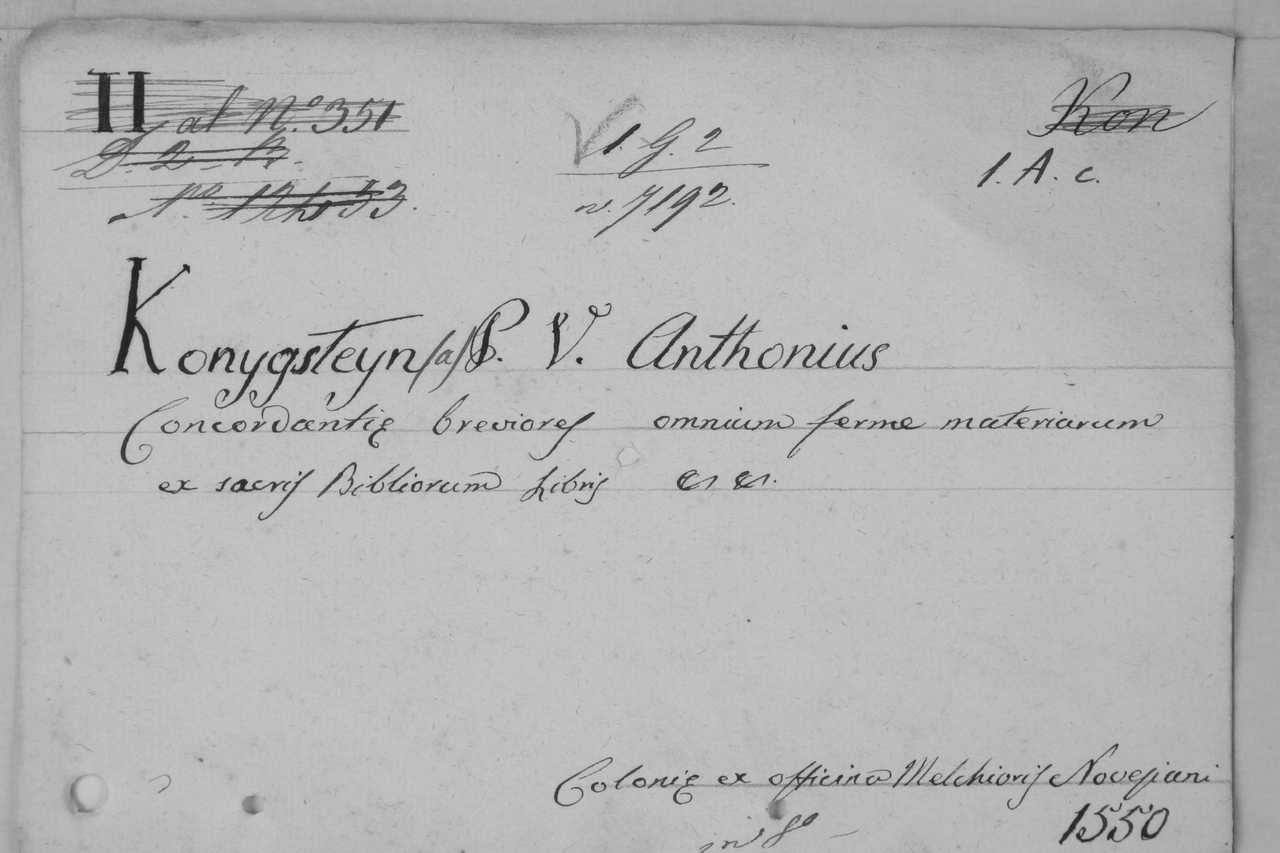 II al N.º 351
Kon
1. G. 2
D. 2.
1. A. c.
n. 7192.
Nº 53.
Konygsteyn (a) P. V. Anthonius
Concordantię breviores omnium ferme materiarum
ex sacris Bibliorum Libris &. &.
Colonię ex officina Melchioris Novesiani
in 8º
1550